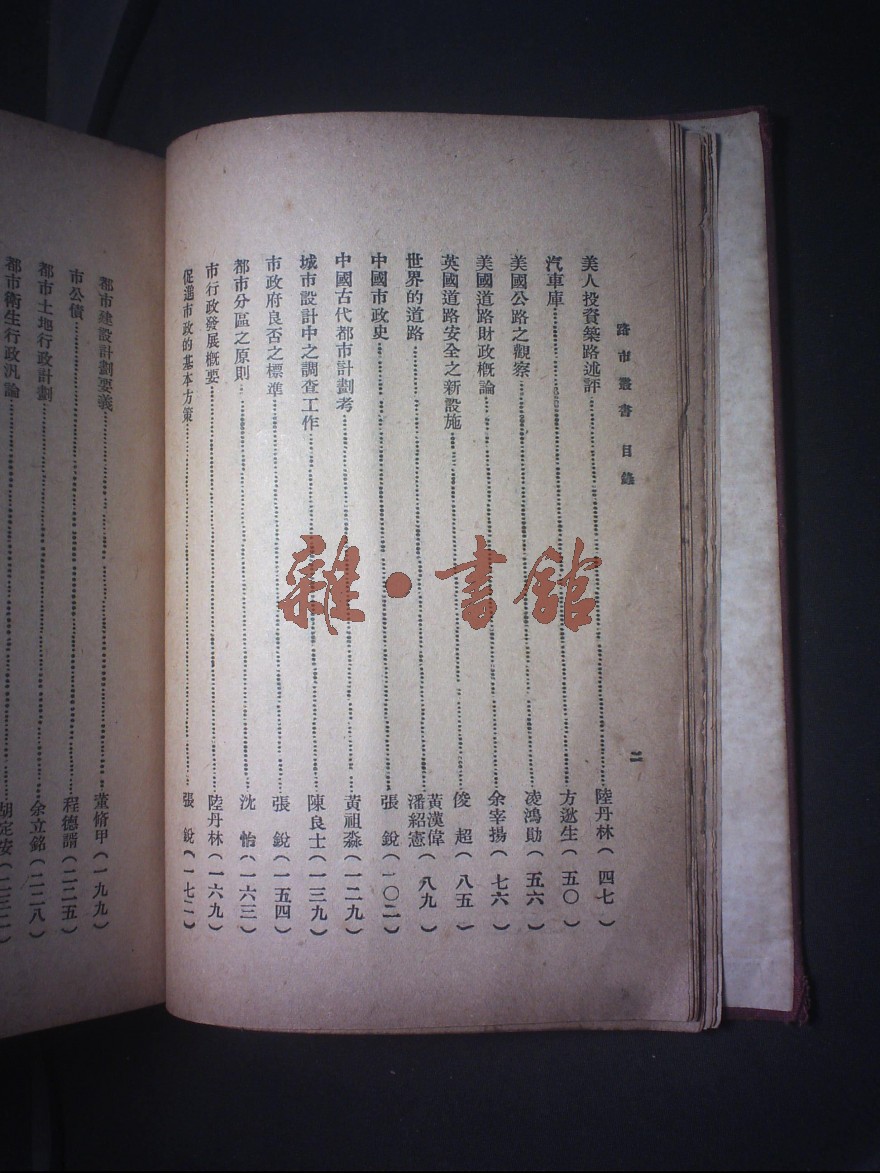 路市叢書 目錄
二
美人投資築路述評……陸丹林(四七)
汽車庫……方逖生(五〇)
美國公路之觀察……凌鴻勛(五六)
美國道路財政概論……余宰揚(七六)
英國道路安全之新設施……俊 超(八五)
世界的道路……黃漢偉 潘紹憲(八九)
中國市政史……張 銳(一〇二)
中國古代都市計劃考……黃祖淼(一二九)
城市設計中之調查工作……陳良士(一三九)
市政府良否之標準……張 銳(一五四)
都市分區之原則……沈 怡(一六三)
市行政發展概要……陸丹林(一六九)
促進市政的基本方策……張 銳(一七二)
都市建設計劃要義……董脩甲(一九九)
市公債……程德諝(二二五)
都市土地行政計劃……余立銘(二二八)
都市衛生行政汎論……胡定安(二三二)
雜·書館